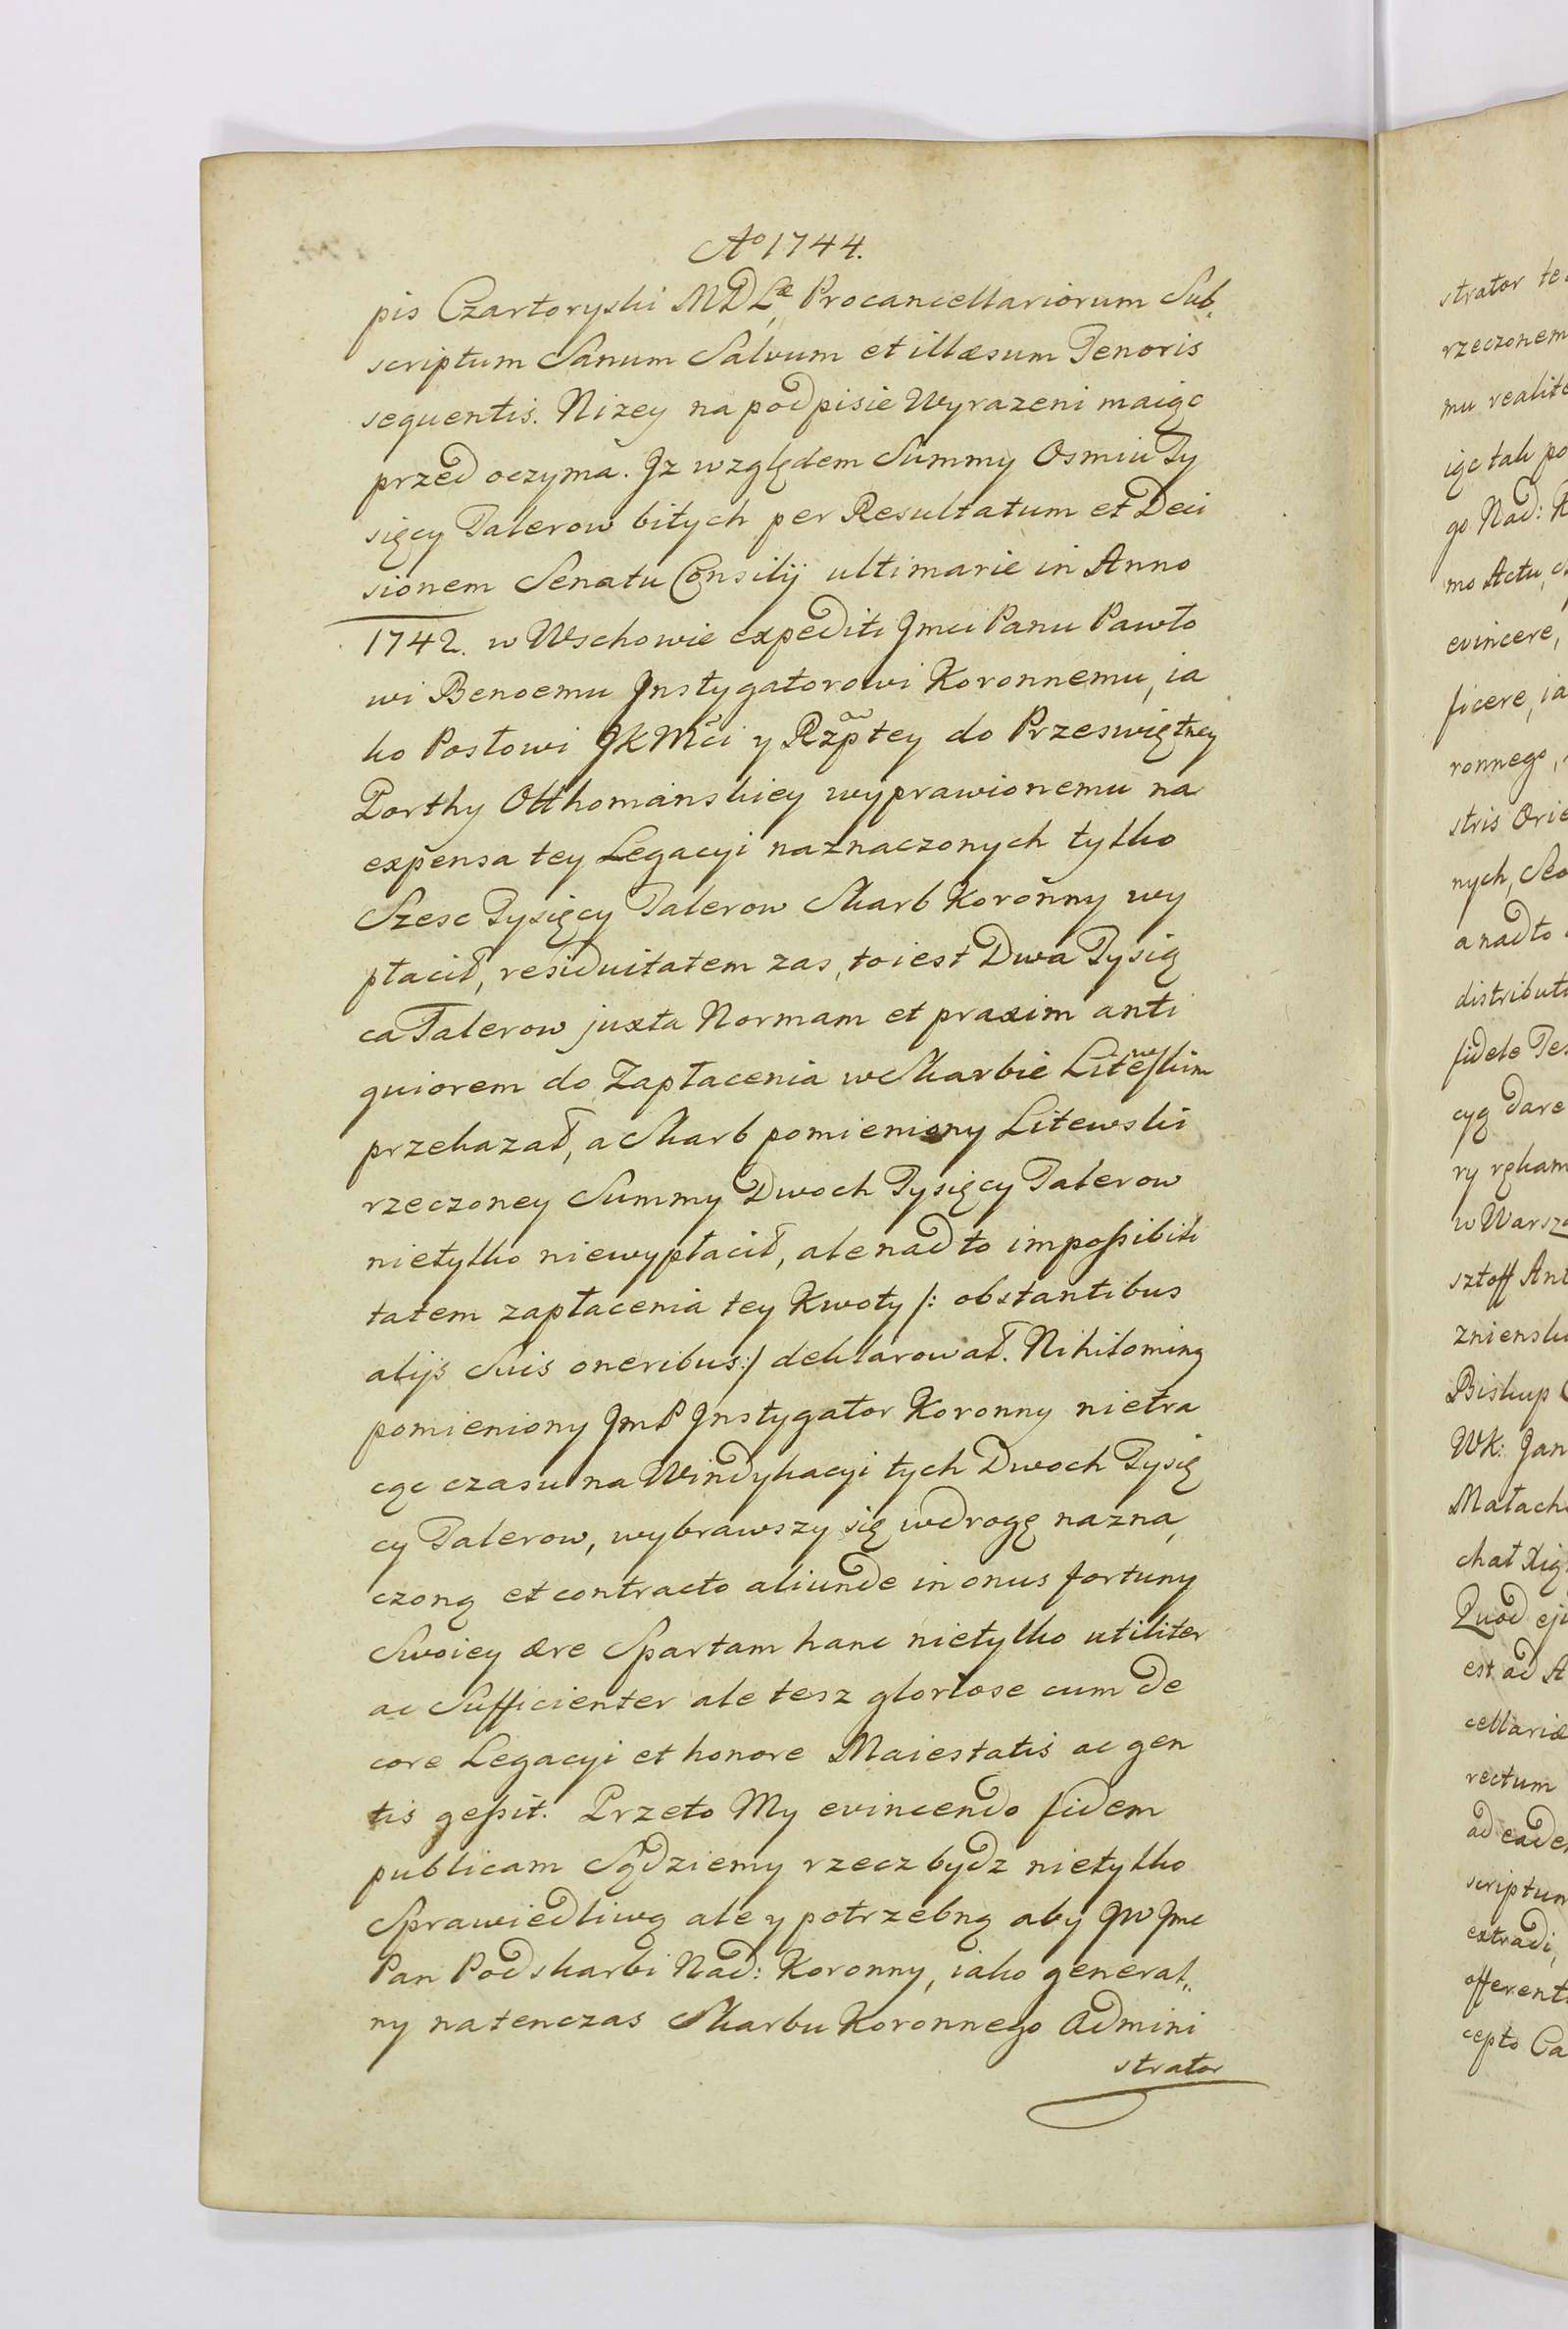 Ao 1744.
pis Czartoryski MDLæ Procancellariorum Sub,
scriptum Sanum Salvum et illæsum Tenoris
sequentis. Nizey na podpisie Wyrazeni maiąc
przed oczyma. Jz względem Summy Osmiu Ty
sięcy Talerow bitych per Resultatum et Deci
sionem Senatu Consilij ultimarie in Anno
1742. w Wschowie expediti Jmci Panu Pawło
wi Benoemu Jnstygatorowi Koronnemu, ia
ko Posłowi JKMći y Rzptey do Przeswiętney
Porthy Otthomanskiey wyprawionemu na
expensa tey Legacyi naznaczonych tylko
Szesc Tysięcy Talerow Skarb Koronny wy
płacił, residuitatem zas, toiest Dwa Tysią
ca Talerow juxta Normam et praxim anti
quiorem do Zapłacenia w Skarbie Litewskim
przekazał, a Skarb pomieniony Litewski
rzeczoney Summy Dwoch Tysięcy Talerow
nietylko niewypłacił, ale nadto impossibili
tatem zapłacenia tey Kwoty /: obstantibus
alijs Suis oneribus :/ deklarował. Nihilominq
pomieniony JmP Jnstygator Koronny nietra
cąc czasu na Windykacyi tych Dwoch Tysię
cy Talerow, wybrawszy się wdrogę nazna,
czoną et contracto aliunde in onus fortuny
Swoiey ære Spartam hanc nietylko utiliter
ac Sufficienter ale tesz gloriose cum de
core Legacyi et honore Maiestatis ac gen
tis gessit. Przeto My evincendo fidem
publicam Sądziemy rzecz bydz nietylko
Sprawiedliwą ale y potrzebną aby JW Jmc
Pan Podskarbi Nad: Koronny, iako general,,
ny natenczas Skarbu Koronnego Admini
strator
strator
rzeczonem
mu realite
iąc tak po
go Nad: K
mo Actu,
evincere,
ficere, ia
ronnego,
stris Orie
nych,
a nadto
distributi
fidele Tes
cyą dare
ry rękam
w Warsza
sztoff Ant
znienski
Biskup
WK: Jan
Małach
chał Xią
Quod eju
est ad A
cellariæ
rectum
ad eade
scriptum
extradi,
offerent
cepto Ca